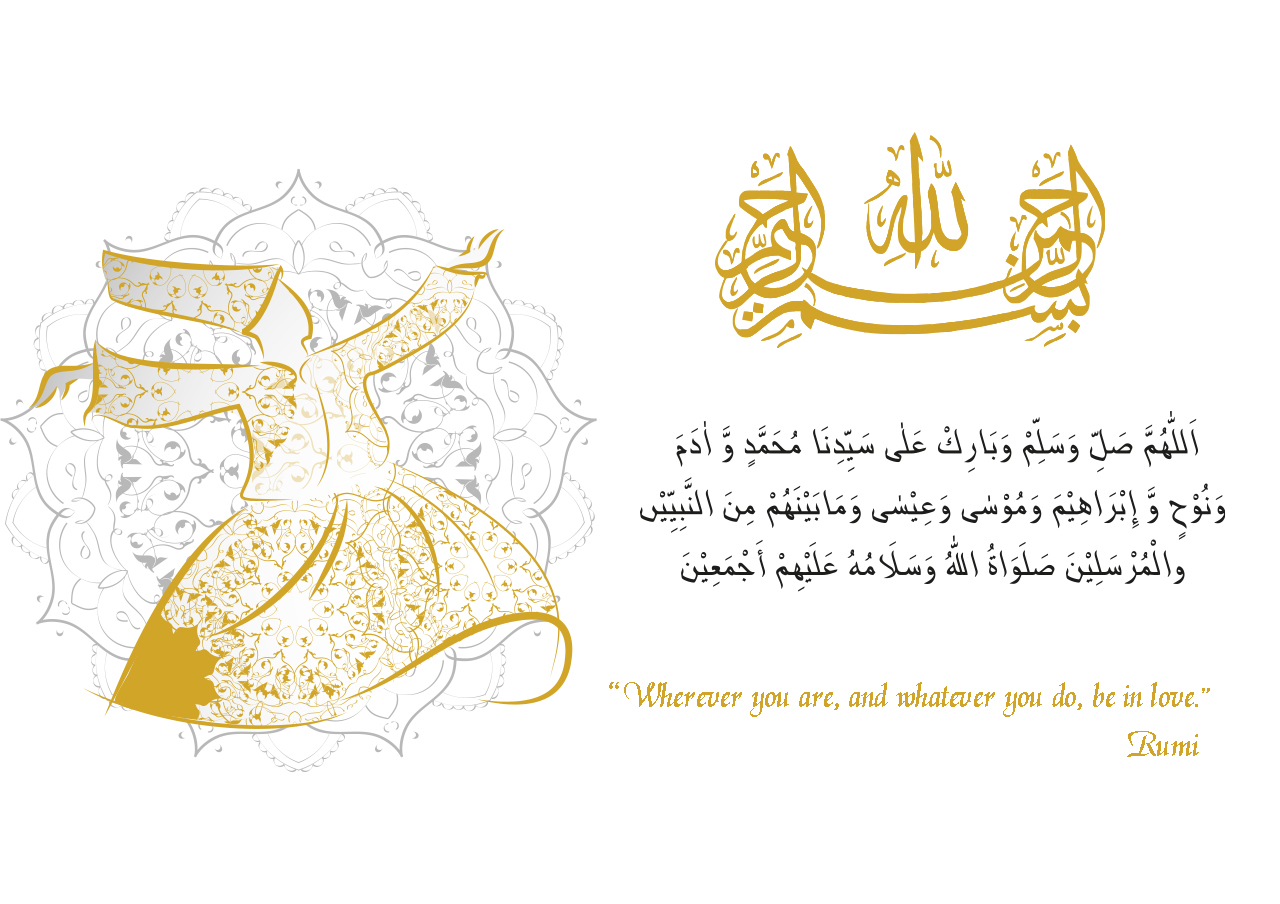 بسم الله الرحمن الرحيم
اَللّٰهُمَّ صَلِّ وَسَلِّمْ وَبَارِكْ عَلٰى سَيِّدِنَا مُحَمَّدٍ وَّ اٰدَمَ
وَنُوْحٍ وَّ إِبْرَاهِيْمَ وَمُوْسٰى وَعِيْسٰى وَمَابَيْنَهُمْ مِنَ النَّبِيِّيْن
والْمُرْسَلِيْنَ صَلَوَاةُ اللهُ وَسَلَامُهُ عَلَيْهِمْ أَجْمَعِيْنَ
“Wherever you are, and whatever you do, be in love.”
Rumi